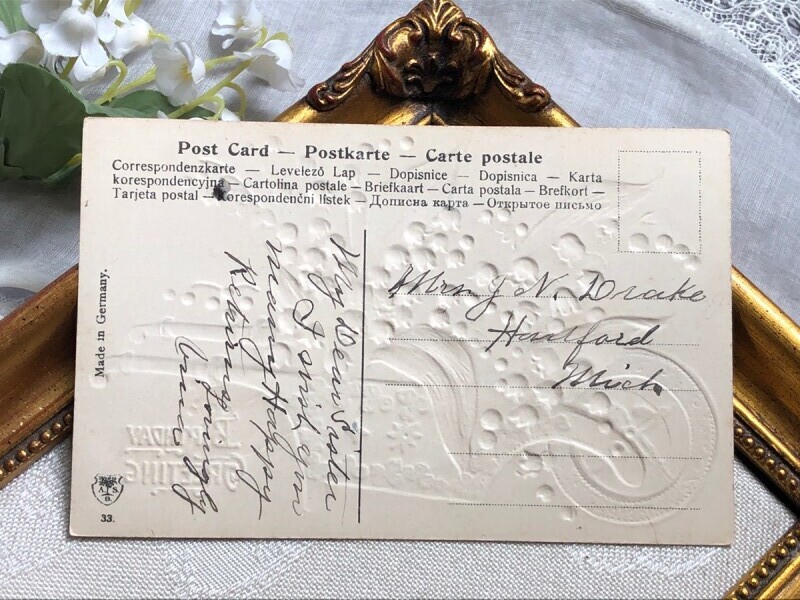 Post Card — Postkarte — Carte postale
Correspondenzkarte — Levelező Lap — Dopisnice — Dopisnica — Karta
korespondencyjna — Cartolina postale — Briefkaart — Carta postala — Brefkort —
Tarjeta postal — Korespondenční lístek — Дописна карта — Открытое письмо
Made in Germany.
My Dear Sister
I wish you
many Happy
Returns
Lovingly
Mrs J N. Drake
Hartford
Mich
BIRTHDAY
GREETING
A S
B.
33.